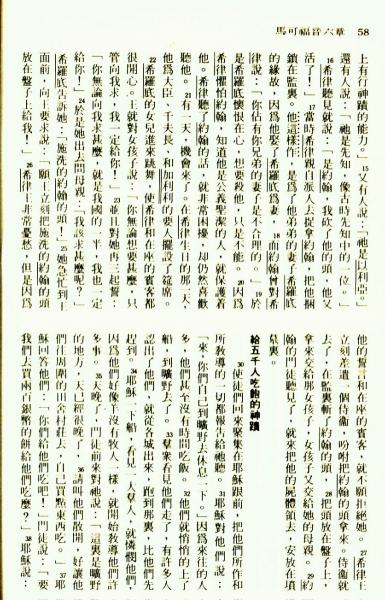 馬可福音六章 58
上有行神蹟的能力。」15又有人說：「祂是以利亞。」
還有人說：「祂是先知，像古時先知中的一位。」
16希律聽見就說：「是約翰，我砍了他的頭，他又
活了！」17當時希律親自派人去捉拿約翰，把他綑
鎖在監裏。他這樣作，是爲了他弟弟的妻子希羅底
的緣故，因爲他娶了希羅底爲妻，18而約翰曾對希
律說：「你佔有你兄弟的妻子是不合理的。」19於
是希羅底懷恨在心，想要殺他，只是不能。20因爲
希律懼怕約翰，知道他是公義聖潔的人，就保護着
他。希律聽了約翰的話，就非常困擾，却仍然喜歡
聽他。21有一天，機會來了。在希律生日的那一天，
他爲大臣、千夫長，和加利利的要人擺設了筵席。
22希羅底的女兒進來跳舞，使希律和在座的賓客都
很開心。王就對女孩子說：「你無論想要甚麼，只
管向我求，我一定給你！」23並且對她再三起誓：
「你無論向我求甚麼，就是我國的一半，我也一定
給你！」24於是她出去問母親：「我該求甚麼呢？」
希羅底告訴她：「施洗的約翰的頭！」25她急忙到王
面前，向王要求說：「願王立刻把施洗的約翰的頭
放在盤子上給我！」26希律王非常憂愁，但是因爲
他的誓言和在座的賓客，就不願拒絕她。27希律王
立刻差遣一個侍衞，吩咐把約翰的頭拿來。侍衞就
去了，在監裏斬了約翰的頭，28把頭放在盤子上，
拿來交給那女孩子，女孩子又交給她的母親。29約
翰的門徒聽見了，就來把他的屍體領去，安放在墳
墓裏。
給五千人吃飽的神蹟
30使徒們回來聚集在耶穌跟前，把他們所作和
所教導的一切都報告給祂聽。31耶穌對他們說：
「來，你們自己到曠野去休息一下。」因爲來往的人
多，他們甚至沒有時間吃飯。32他們就悄悄的上了
船，到曠野去了。33羣衆看見他們走了，有許多人
認出了他們，就從各城出來，跑到那裏，比他們先
趕到。34耶穌一下船，看見一大羣人，就憐憫他們，
因爲他們好像羊沒有牧人一樣，就開始教導他們許
多事。35天晚了，門徒前來對祂說：「這裏是曠野
的地方，天已經很晚了，36請叫他們散開，好讓他
們往周圍的田舍村莊去，自己買點東西吃。」37耶
穌回答他們：「你們給他們吃吧！」門徒說：「要
我們去買兩百銀幣的餅給他們吃麼？」38耶穌說：